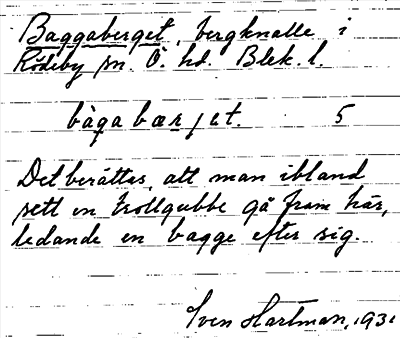 Baggaberget, bergknalle i
Rödeby sn. Ö. hd. Blek. l.
bàgabærjət. 5
Det berättas, att man ibland
sett en trollgubbe gå fram här,
ledande en bagge efter sig.
Sven Hartman, 1931